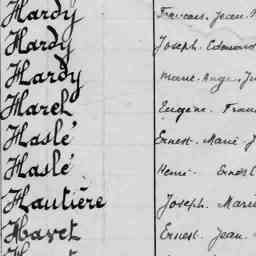 Hardy François. Jean.
Hardy Joseph. Edouard
Hardy Marie. Ange.
Harel Eugène. Fran
Haslé Ernest. Marie J
Haslé Henri. Ernest
Hautière Joseph. Marie
Havet Ernest. Jean.